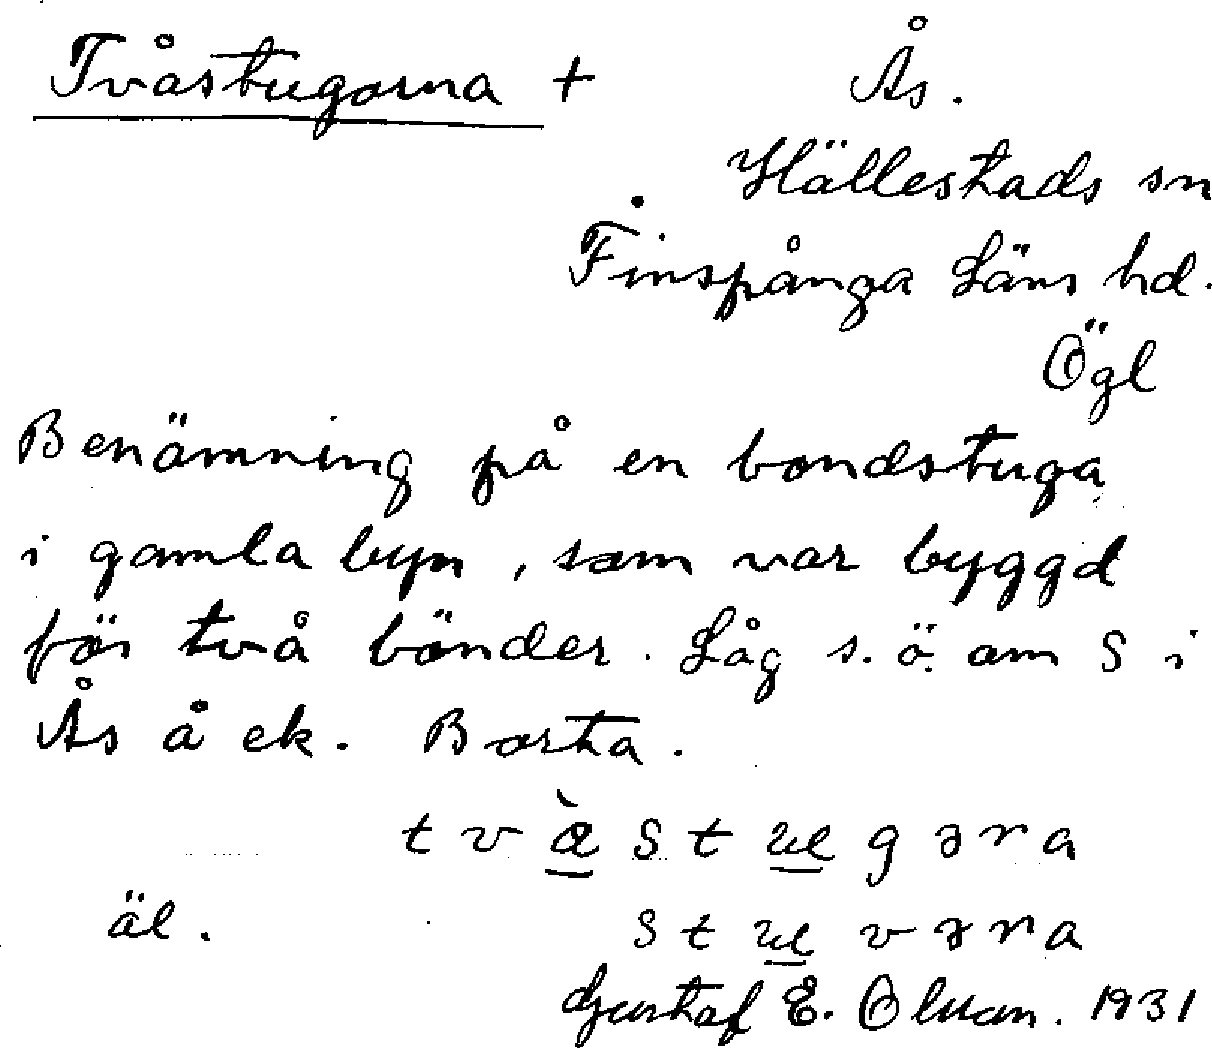 Tvåstugorna + Ås.
Hällestads sn
Finspånga Läns hd.
Ögl
Benämning på en bondstuga
i gamla byn, som var byggd
för två bönder. Låg s.ö. om S i
Ås å ek. Borta.
tvàstugəra
äl. stuvəra
Gustaf E. Olsson. 1931